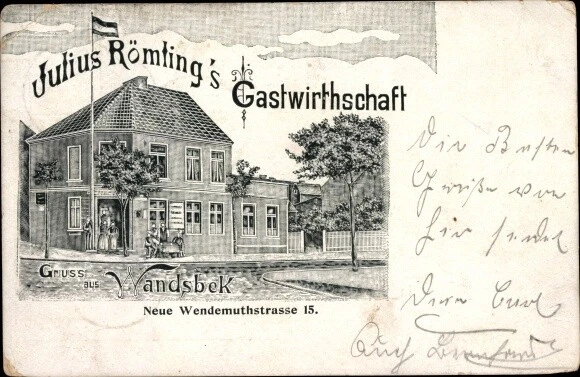 Julius Römling's
Gastwirthschaft
Gruss
aus Wandsbek
Neue Wendemuthstrasse 15.
Die Besten
Grüße von
hier sendet
Dein Carl
Auch